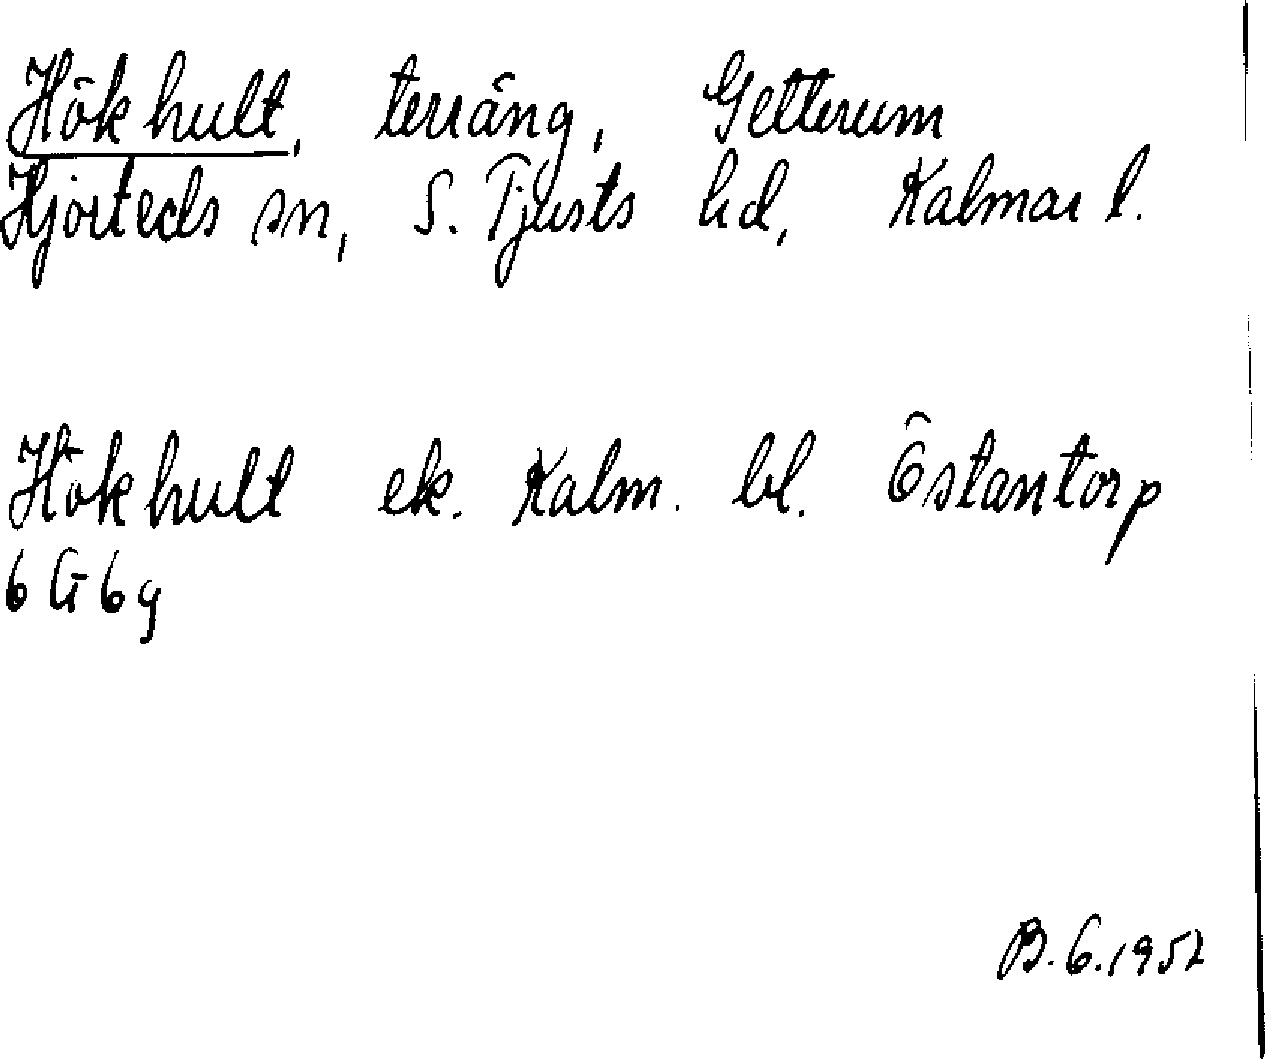 Hökhult, terräng, Getterum
Hjorteds sn, S. Tjusts hd, Kalmar l.
Hökhult ek. Kalm. bl. Östantorp
6 G 6 g
B.G.1952